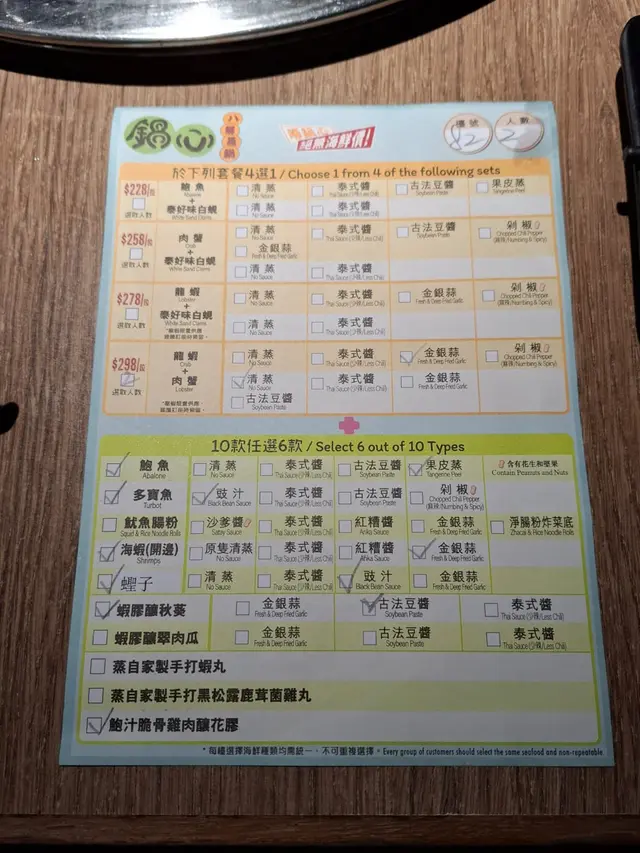 鍋心
八層蒸鍋
海鮮價!
檯號
82
人數
2
於下列套餐4選1 / Choose 1 from 4 of the following sets
$228/位
選取人數
鮑魚
Abalone
+
泰好味白蜆
White Sand Clams
清蒸
No Sauce
泰式醬
Thai Sauce(少辣/Less Chili)
古法豆醬
Soybean Paste
果皮蒸
Tangerine Peel
清蒸
No Sauce
泰式醬
Thai Sauce(少辣/Less Chili)
$258/位
選取人數
肉蟹
Crab
+
泰好味白蜆
White Sand Clams
清蒸
No Sauce
泰式醬
Thai Sauce(少辣/Less Chili)
古法豆醬
Soybean Paste
剁椒
Chopped Chili Pepper
(麻辣/Numbing & Spicy)
金銀蒜
Fresh & Deep Fried Garlic
清蒸
No Sauce
泰式醬
Thai Sauce(少辣/Less Chili)
$278/位
選取人數
龍蝦
Lobster
+
泰好味白蜆
White Sand Clams
清蒸
No Sauce
泰式醬
Thai Sauce(少辣/Less Chili)
金銀蒜
Fresh & Deep Fried Garlic
剁椒
Chopped Chili Pepper
(麻辣/Numbing & Spicy)
清蒸
No Sauce
泰式醬
Thai Sauce(少辣/Less Chili)
$298/位
2
選取人數
龍蝦
Crab
+
肉蟹
Lobster
清蒸
No Sauce
泰式醬
Thai Sauce(少辣/Less Chili)
金銀蒜
Fresh & Deep Fried Garlic
剁椒
Chopped Chili Pepper
(麻辣/Numbing & Spicy)
清蒸
No Sauce
泰式醬
Thai Sauce(少辣/Less Chili)
金銀蒜
Fresh & Deep Fried Garlic
古法豆醬
Soybean Paste
10款任選6款 / Select 6 out of 10 Types
鮑魚
Abalone
清蒸
No Sauce
泰式醬
Thai Sauce(少辣/Less Chili)
古法豆醬
Soybean Paste
果皮蒸
Tangerine Peel
含有花生和堅果
Contain Peanuts and Nuts
多寶魚
Turbot
豉汁
Black Bean Sauce
泰式醬
Thai Sauce(少辣/Less Chili)
古法豆醬
Soybean Paste
剁椒
Chopped Chili Pepper
(麻辣/Numbing & Spicy)
魷魚腸粉
Squid & Rice Noodle Rolls
沙爹醬
Satay Sauce
泰式醬
Thai Sauce(少辣/Less Chili)
紅糟醬
Anka Sauce
金銀蒜
Fresh & Deep Fried Garlic
淨腸粉炸菜底
Zhacai & Rice Noodle Rolls
海蝦(開邊)
Shrimps
原隻清蒸
No Sauce
泰式醬
Thai Sauce(少辣/Less Chili)
紅糟醬
Anka Sauce
金銀蒜
Fresh & Deep Fried Garlic
蟶子
清蒸
No Sauce
泰式醬
Thai Sauce(少辣/Less Chili)
豉汁
Black Bean Sauce
金銀蒜
Fresh & Deep Fried Garlic
蝦膠釀秋葵
金銀蒜
Fresh & Deep Fried Garlic
古法豆醬
Soybean Paste
泰式醬
Thai Sauce(少辣/Less Chili)
蝦膠釀翠肉瓜
金銀蒜
Fresh & Deep Fried Garlic
古法豆醬
Soybean Paste
泰式醬
Thai Sauce(少辣/Less Chili)
蒸自家製手打蝦丸
蒸自家製手打黑松露鹿茸菌雞丸
鮑汁脆骨雞肉釀花膠
* 每檯選擇海鮮種類均需統一、不可重複選擇。Every group of customers should select the same seafood and non-repeatable